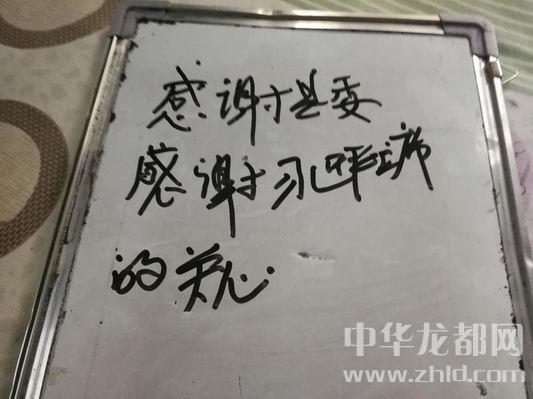 感谢县委
感谢习主席
的关心.
中华龙都网
www.zhld.com